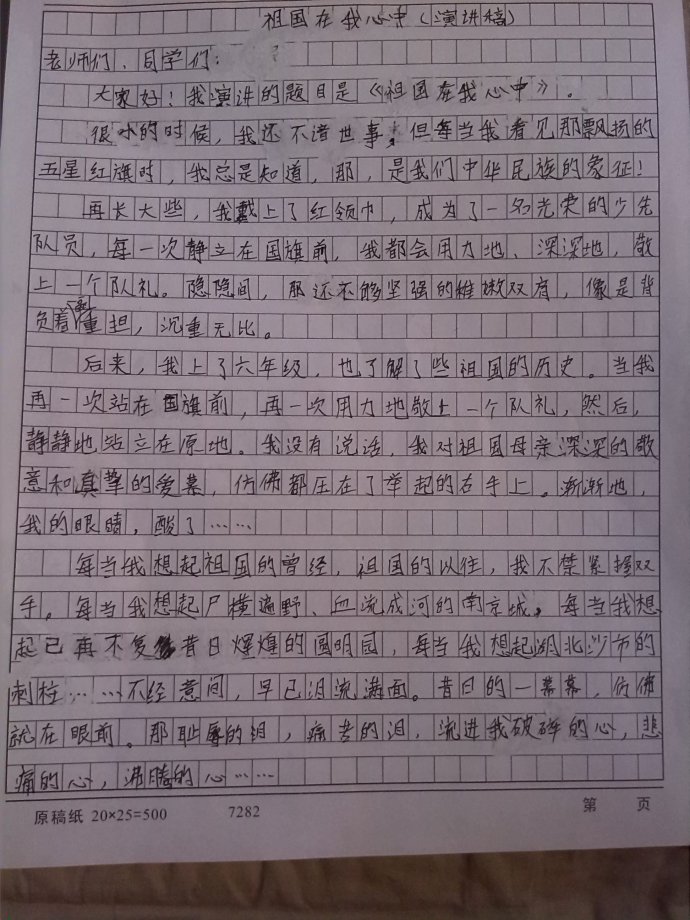 祖国在我心中（演讲稿）
老师们、同学们：
大家好！我演讲的题目是《祖国在我心中》。
很小的时候，我还不谙世事，但每当我看见那飘扬的
五星红旗时，我总是知道，那，是我们中华民族的象征！
再长大些，我戴上了红领巾，成为了一名光荣的少先
队员，每一次静立在国旗前，我都会用力地、深深地，敬
上一个队礼。隐隐间，那还不够坚强的稚嫩双肩，像是背
负着重担，沉重无比。
后来，我上了六年级，也了解了些祖国的历史。当我
再一次站在国旗前，再一次用力地敬上一个队礼，然后，
静静地站立在原地。我没有说话，我对祖国母亲深深的敬
意和真挚的爱慕，仿佛都压在了举起的右手上。渐渐地，
我的眼睛，酸了……
每当我想起祖国的曾经，祖国的以往，我不禁紧握双
手。每当我想起尸横遍野、血流成河的南京城，每当我想
起已再不复昔日辉煌的圆明园，每当我想起湖北沙市的
刺柱……不经意间，早已泪流满面。昔日的一幕幕，仿佛
就在眼前。那耻辱的泪，痛苦的泪，流进我破碎的心，悲
痛的心，沸腾的心……
原稿纸 20×25=500 7282 第 页